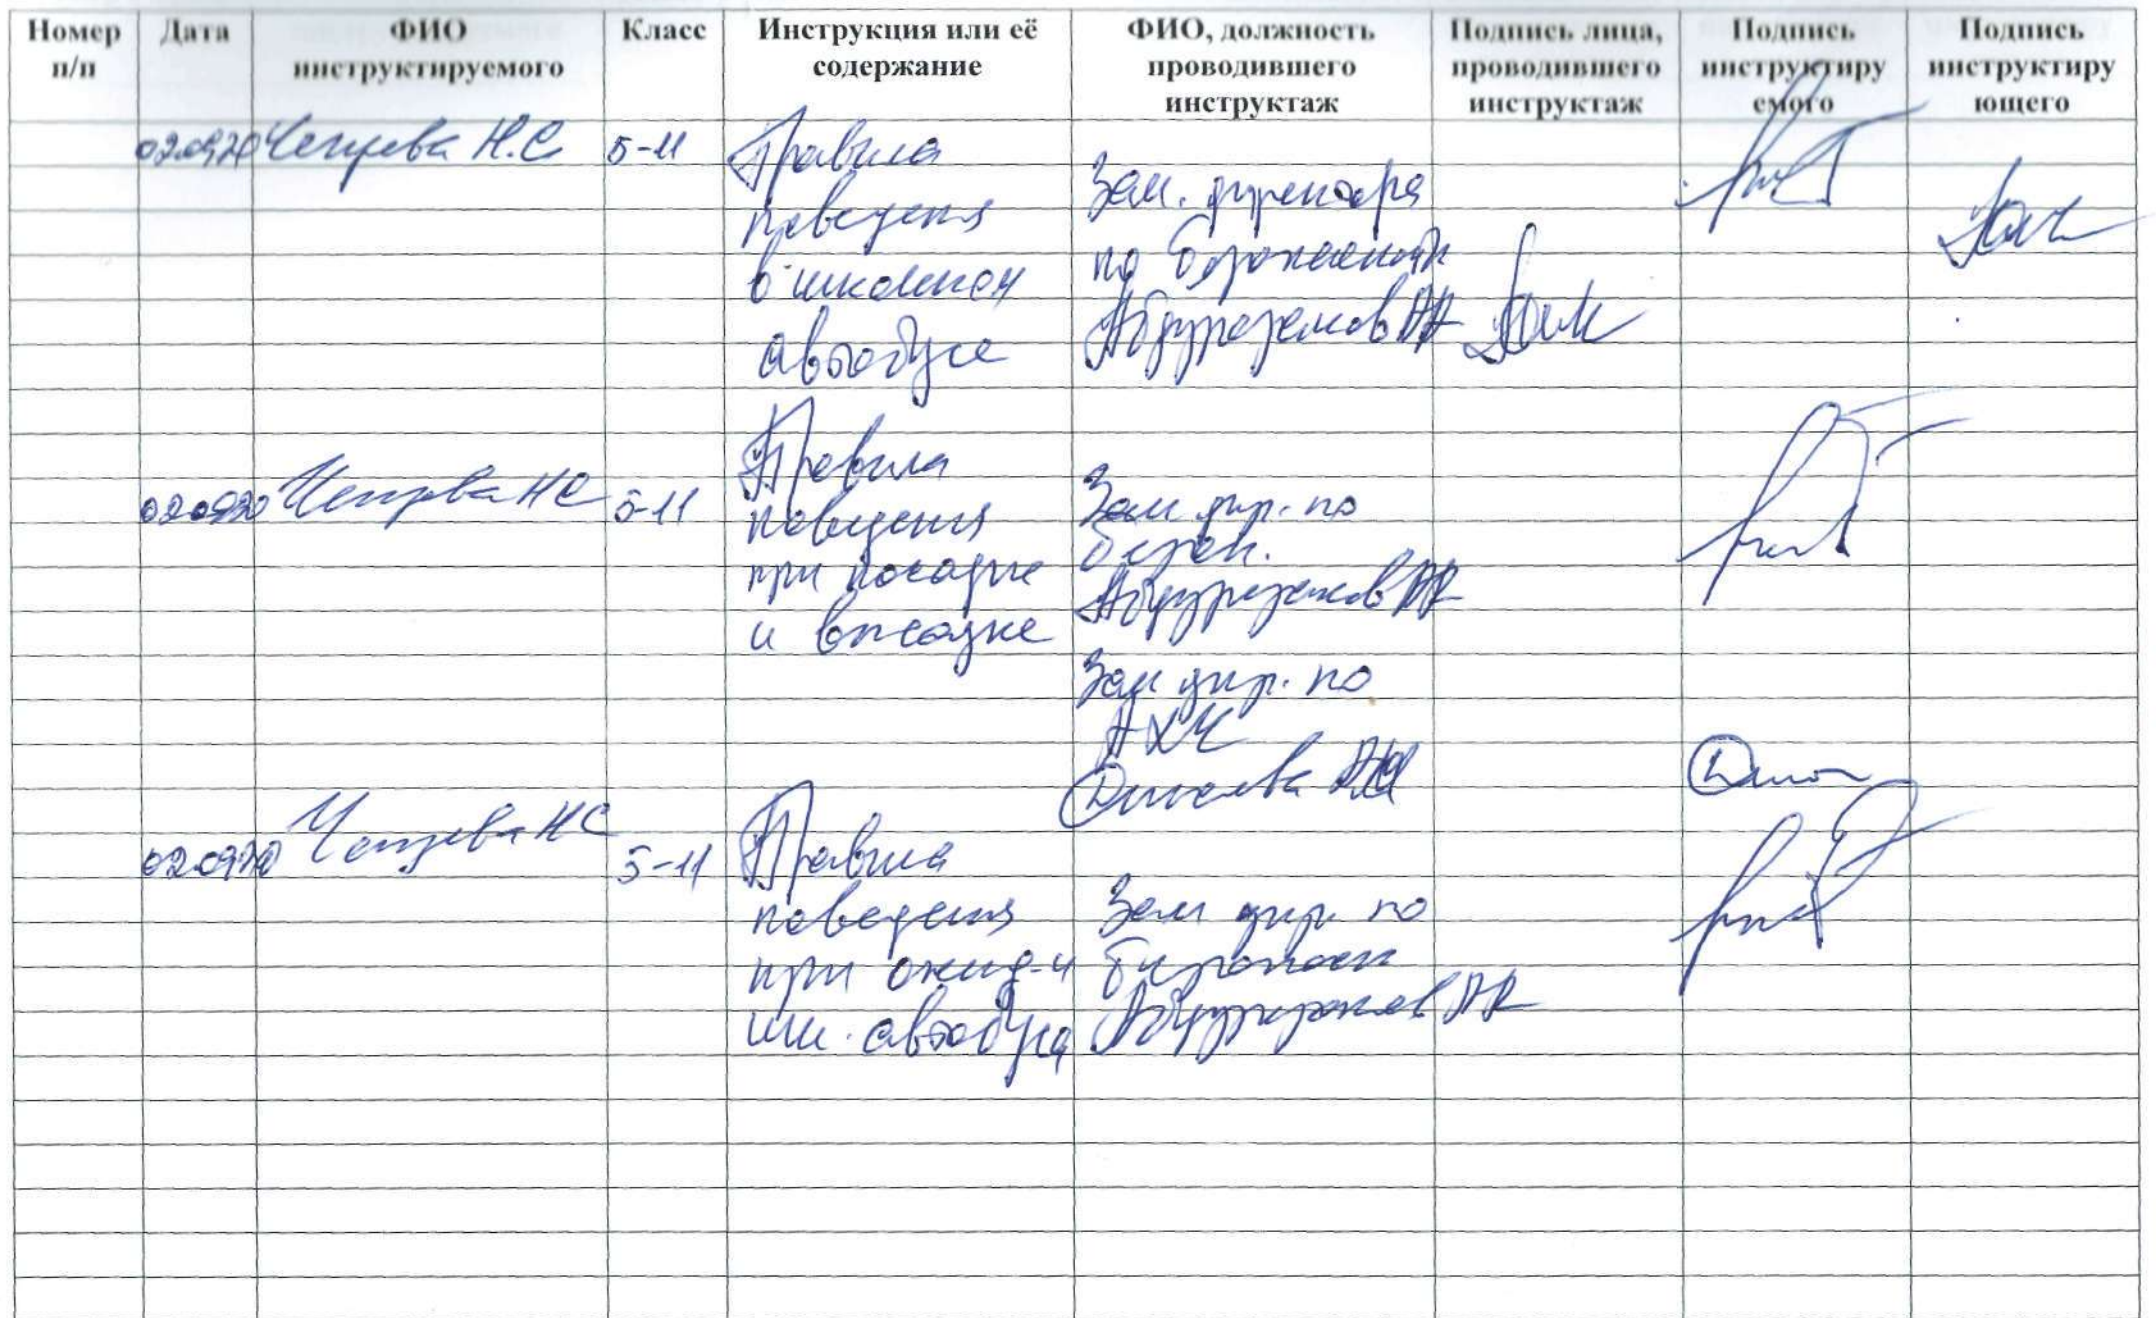 Номер п/п
Дата
ФИО инструктируемого
Класс
Инструкция или её содержание
ФИО, должность проводившего инструктаж
Подпись лица, проводившего инструктаж
Подпись инструктиру емого
Подпись инструктиру ющего
02.09.20 Н.С. 5-11 Правила
поведения
в школьном
автобусе
Зам. директора
по безопасности
Абдуразаков АА
02.09.20 НС 5-11 Правила
поведения
при посадке
и высадке
Зам дир. по
безоп.
Абдуразаков
Зам дир. по
АХЧ
02.09.20 НС 5-11 Правила
поведения
при ожид-и
шк. автобуса
Зам дир. по
безопасн
Абдуразаков